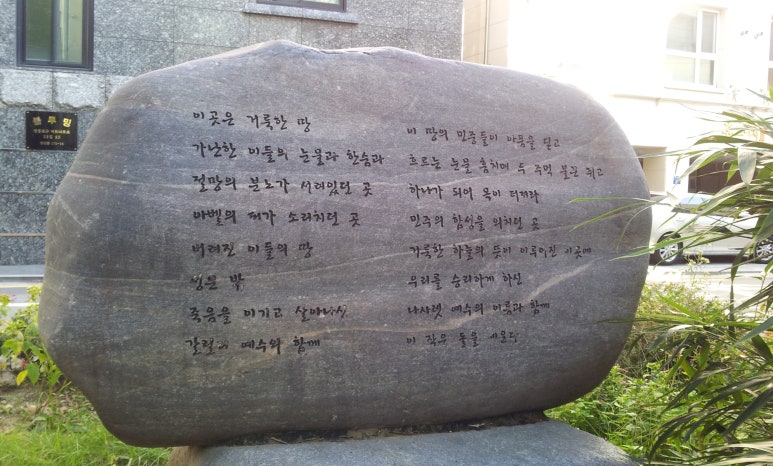 이곳은 거룩한 땅
가난한 이들의 눈물과 한숨과
절망의 분노가 서려있던 곳
아벨의 피가 소리치던 곳
버려진 이들의 땅
성문 밖
죽음을 이기고 살아나사
갈릴리 예수와 함께
이 땅의 민중들이 아픔을 딛고
흐르는 눈물 훔치며 두 주먹 불끈 쥐고
하나가 되어 목이 터져라
민주의 함성을 외치던 곳
거룩한 하늘의 뜻이 이루어진 이곳에
우리를 승리하게 하신
나사렛 예수의 이름과 함께
이 작은 돌을 세운다